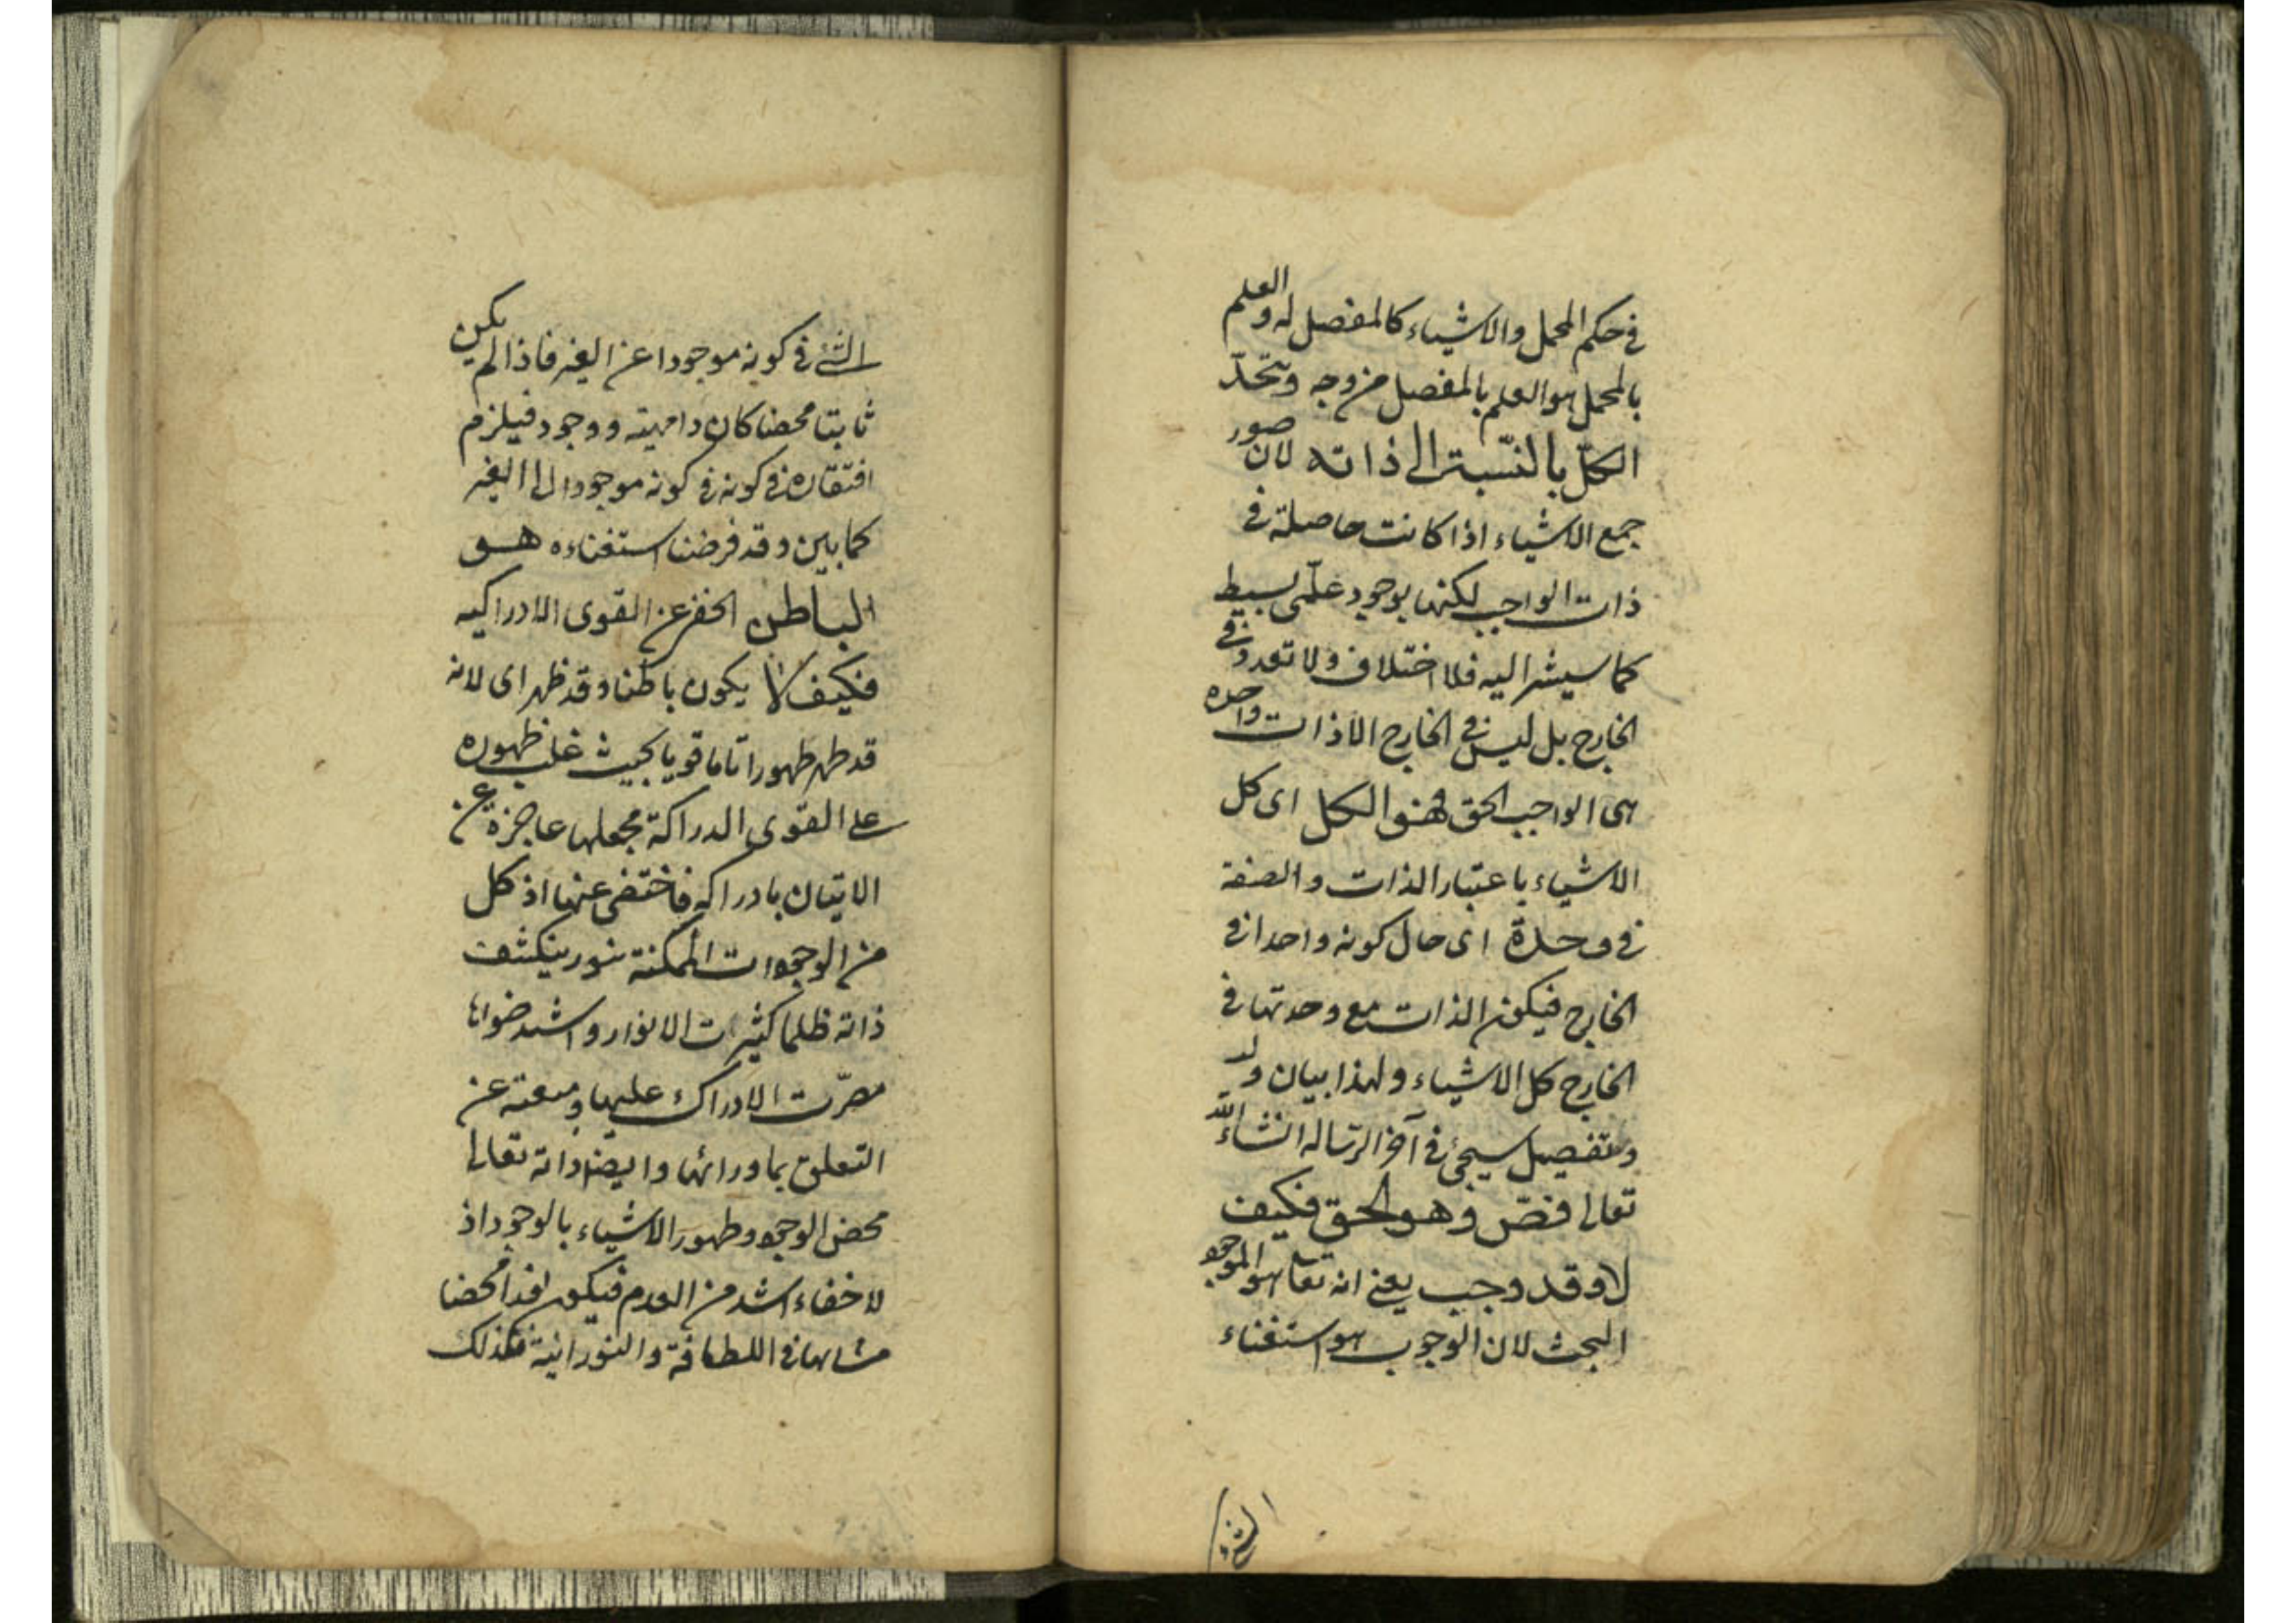 في حكم المجمل والاشياء كالمفصل له والعلم
بالمجمل هو العلم بالمفصل من وجه ويتحد
الكل بالنسبة الى ذاته لان صور
جمع الاشياء اذا كانت حاصلة في
ذات الواجب لكنها بوجود علمي بسيط
كما سيشر اليه فلا اختلاف ولا تعدد في
الخارج بل ليس في الخارج الا ذات واحدة
هى الواجب الحق فهو الكل اى كل
الاشياء باعتبار الذات والصفة
في وحدة اى حال كونه واحدا في
الخارج فيكون الذات مع وحدتها في
الخارج كل الاشياء ولهذا بيان
وتفصيل سيجئ في آخر الرساله انشاء الله
تعالى فصّ وهو الحق فكيف
لا وقد وجب يعنى انه تعا هو الموجود
البحث لان الوجوب هو استغناء
الشئ
الشئ في كونه موجودا عن الغير فاذا لم يكن
ثابتا محضا كان ذا مهية ووجود فيلزم
افتقاره في كونه في كونه موجودا الى الغير
كما بين وقد فرضنا استغناءه هو
الباطن الخفى عن القوى الادراكيه
فكيف لا يكون باطنا وقد ظهر اى لانه
قد ظهر ظهورا تاما قويا بحيث غلب ظهوره
على القوى الدراكة فجعلها عاجزة عن
الاتيان بادراكه فاختفى عنها اذ كل
من الوجودات الممكنة بنور ينكشف
ذاته ظلما كثيرت الانوار واشتد ضواها
الادراك عليها ومنعته عن
التعلق بما ورائها وايضا ذاته تعالى
محض الوجود وظهور الاشياء بالوجود اذ
لا خفاء اشد من العدم فيكون محضا
في اللطافة والنورانية فكذلك